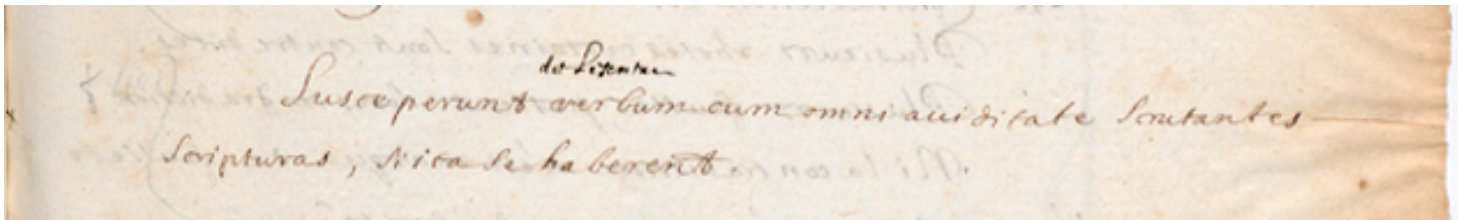 Susceperunt verbum cum omni auiditate Scrutantes
Scripturas, si ita se haberent